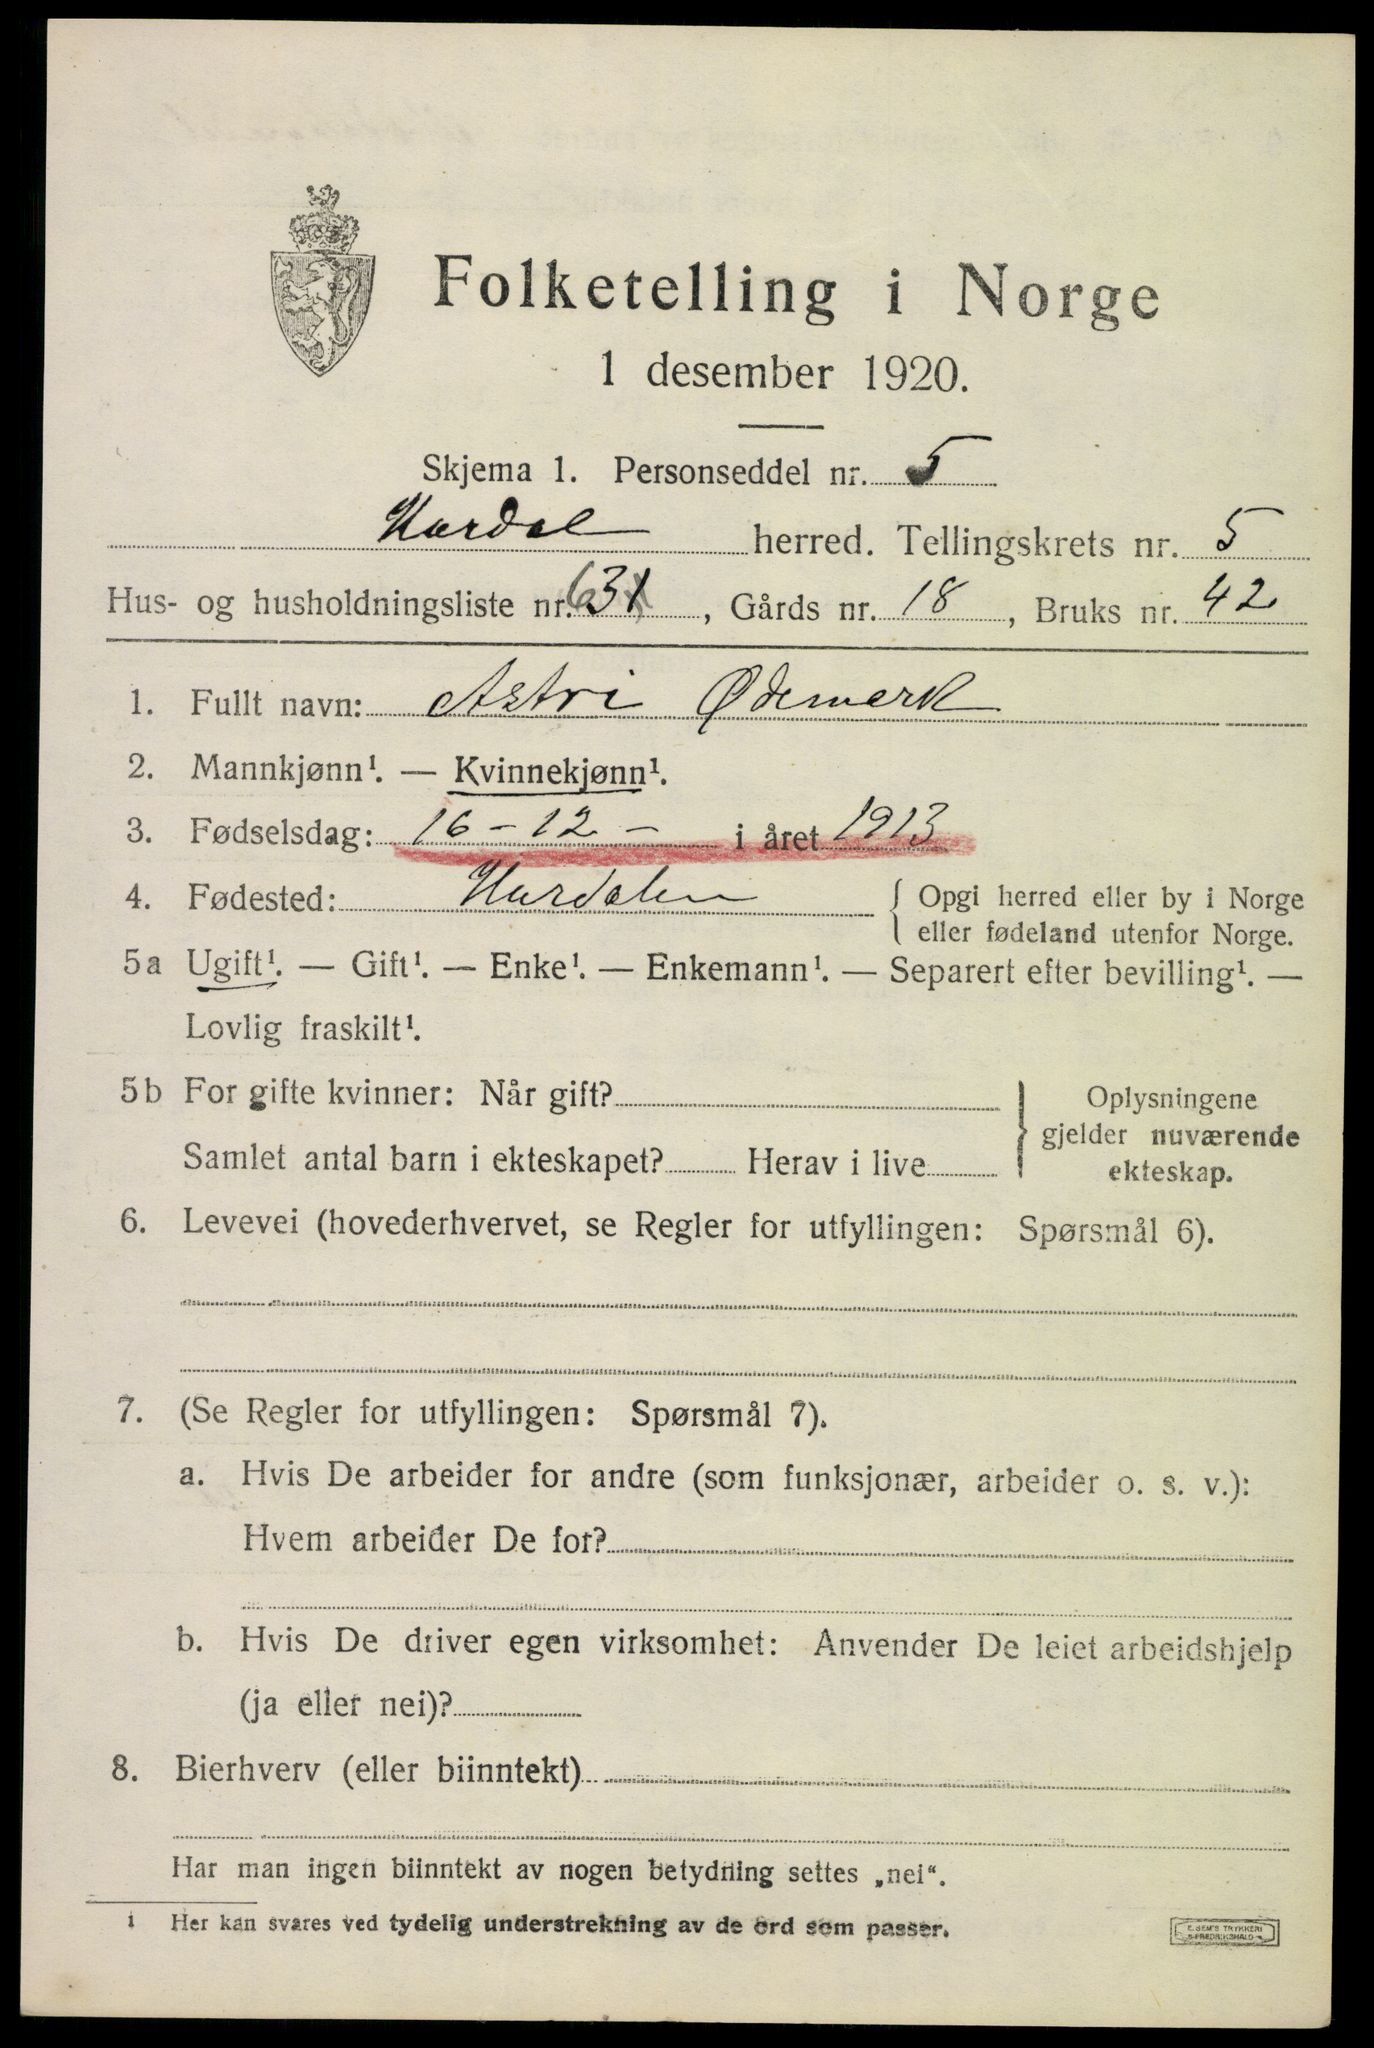 Folketelling i Norge
1 desember 1920.
Skjema 1. Personseddel nr. 5
Hurdal herred. Tellingskrets nr. 5
Hus- og husholdningsliste nr. 63 , Gårds nr. 18 , Bruks nr. 42
1. Fullt navn: Astri Ødemark
2. Mannkjønn¹. — Kvinnekjønn¹.
3. Fødselsdag: 16 - 12 - i året 1913
4. Fødested: Hurdalen { Opgi herred eller by i Norge
eller fødeland utenfor Norge.
5a Ugift¹. — Gift¹. — Enke¹. — Enkemann¹. — Separert efter bevilling¹. —
Lovlig fraskilt¹.
5b For gifte kvinner: Når gift?
Samlet antal barn i ekteskapet? Herav i live
} Oplysningene
gjelder nuværende
ekteskap.
6. Levevei (hovederhvervet, se Regler for utfyllingen: Spørsmål 6).
7. (Se Regler for utfyllingen: Spørsmål 7).
a. Hvis De arbeider for andre (som funksjonær, arbeider o. s. v.):
Hvem arbeider De for?
b. Hvis De driver egen virksomhet: Anvender De leiet arbeidshjelp
(ja eller nei)?
8. Bierhverv (eller biinntekt)
Har man ingen biinntekt av nogen betydning settes „nei“.
1 Her kan svares ved tydelig understrekning av de ord som passer.
E. SEM'S TRYKKERI
FREDRIKSHALD